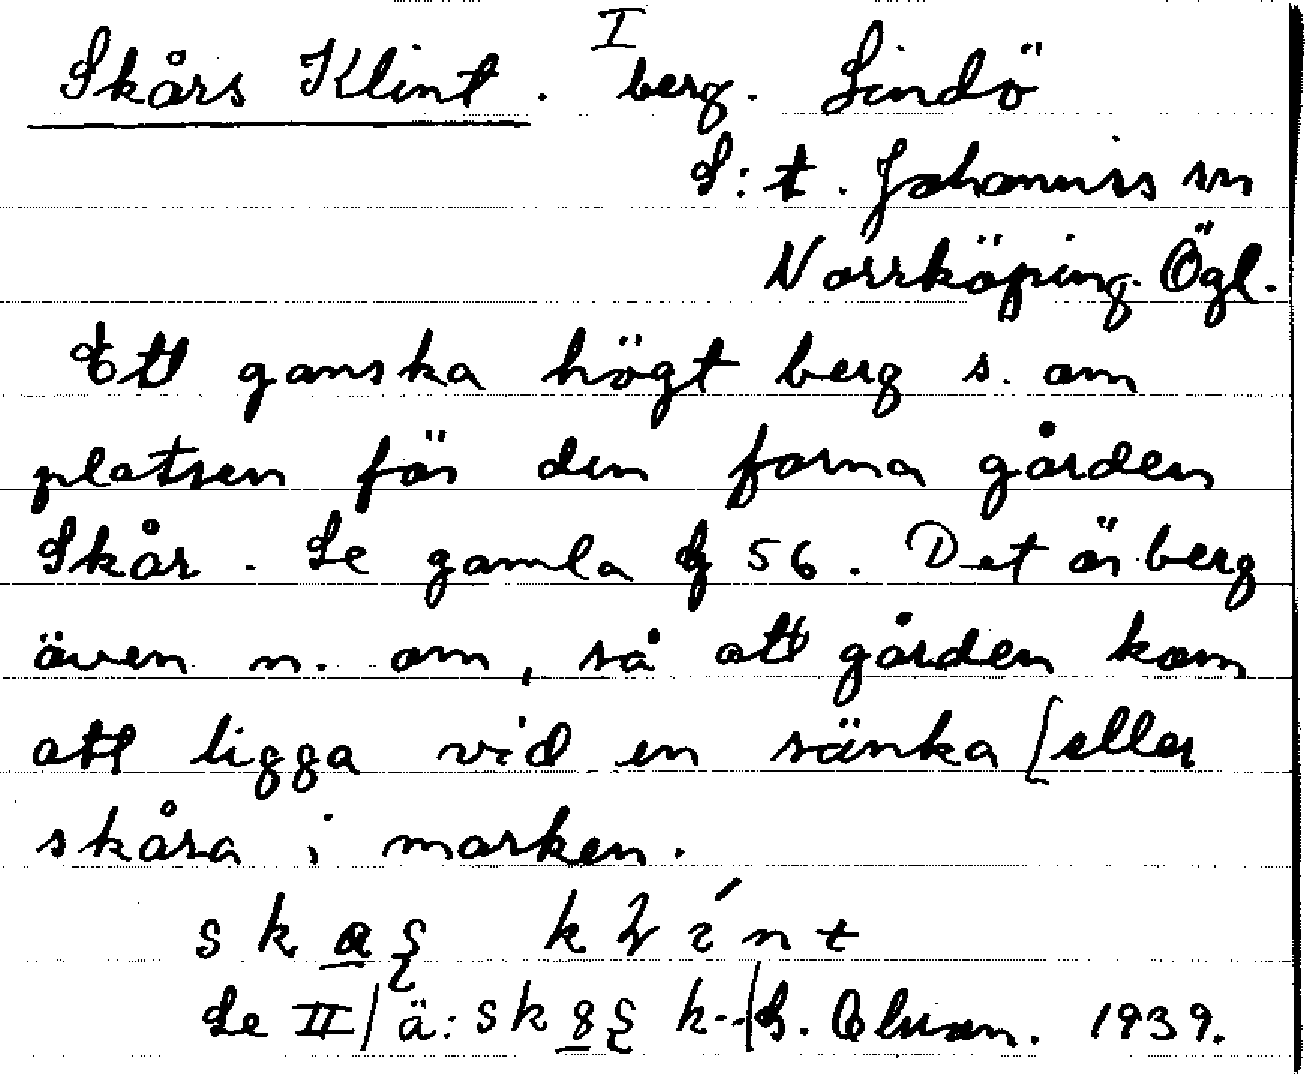 I
Skårs Klint. berg. Lindö
S:t. Johannis sn
Norrköping. Ögl.
Ett ganska högt berg s. om
platsen för den forna gården
Skår. Se gamla 56. Det är berg
även n. om, så att gården kom
att ligga vid en sänka [eller
skåra i marken.
Se II/ä: 1939.